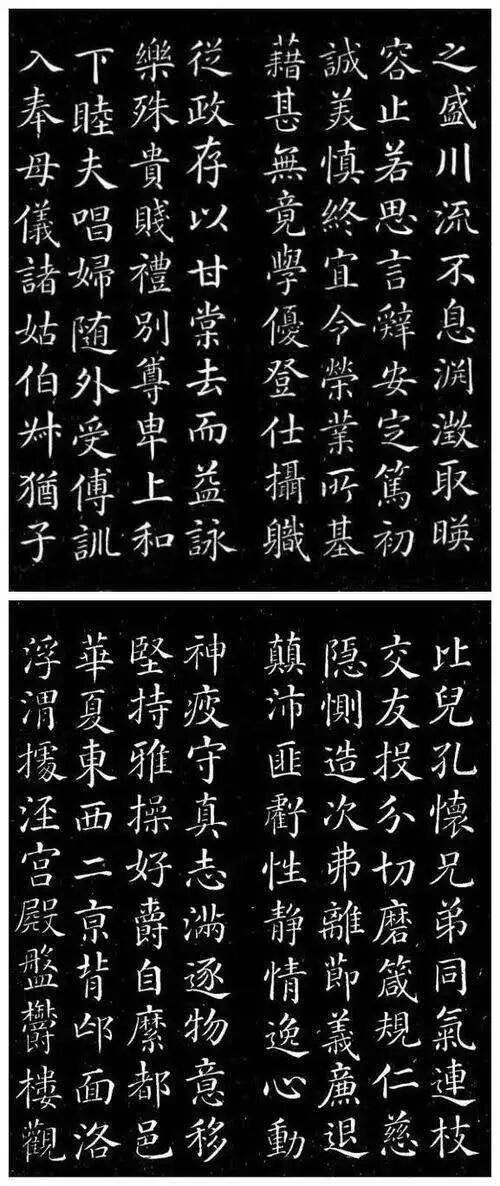 之盛川流不息渊澂取暎
容止若思言辤安定篤初
誠美慎終宜令榮業所基
藉甚無竟學優登仕攝職
從政存以甘棠去而益詠
樂殊貴賤禮別尊卑上和
下睦夫唱婦随外受傅訓
入奉母儀諸姑伯叔猶子
比兒孔懷兄弟同氣連枝
交友投分切磨箴規仁慈
隱惻造次弗離節義廉退
顛沛匪虧性静情逸心動
神疲守真志滿逐物意移
堅持雅操好爵自縻都邑
華夏東西二京背邙面洛
浮渭據涇宮殿盤鬱樓觀